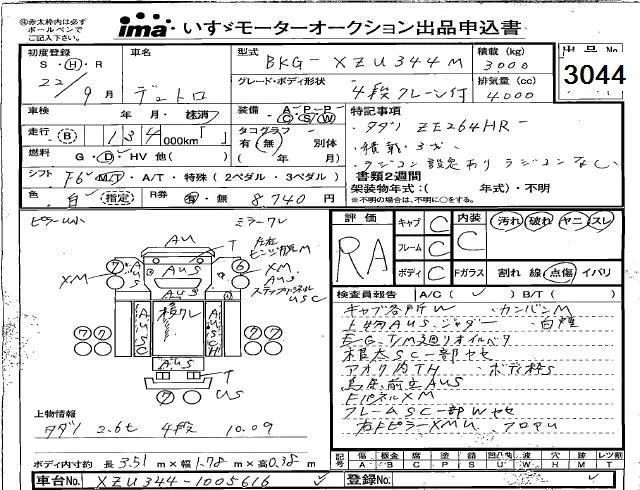 ㊟赤太枠内は必ず
ボールペンで
ご記入下さい。
ima いすゞモーターオークション出品申込書
初度登録
S・H・R
22/9月
車名
デュトロ
型式
BKG-XZU344M
積載(kg)
3000
グレード・ボディ形状
4段クレーン付
排気量(cc)
4000
出品No
3044
車検 年 月・抹消
装備 A P P C S W
特記事項
・タダノ ZE264HR
・積載 3
・ラジコン設定あり ラジコンなし
走行 B 134 000km「 」
タコグラフ
有・無 別体
( 年 月)
燃料 G・D・HV 他( )
シフト F6 MT・A/T・特殊(2ペダル・3ペダル)
書類2週間
架装物年式:( 年式)・不明
※不明の場合は、不明に○をする。
色 白 指定
R券 有・無 8,740円
ミラーワレ
評価
RA
キャブ C
フレーム C
ボディ C
内装 C
汚れ 破れ ヤニ スレ
Fガラス 割れ 線 点傷 イバリ
検査員報告 A/C( ✓ ) B/T( )
キャブ各所W
カンバンM
上物AUS
E/G・T/M廻りオイル
根太SC一部
アオリ内TH
鳥居前立AUS
FパネルXM
フレームSC一部W
右FピラーXMU
AU
T
AUS
XM
US
XM
AUS
ステップパネル
USC
T
US
上物情報
タダノ 2.6t 4段 10.09
ボディ内寸約 長 3.51 m×幅 1.78 m×高 0.38 m
記号 傷 A 鈑金 B 腐 C 塗 P 錆 S 凹凸 U 波 W 穴 H 跡 M レツ割 T
車台No. XZU344-1005616
登録No.